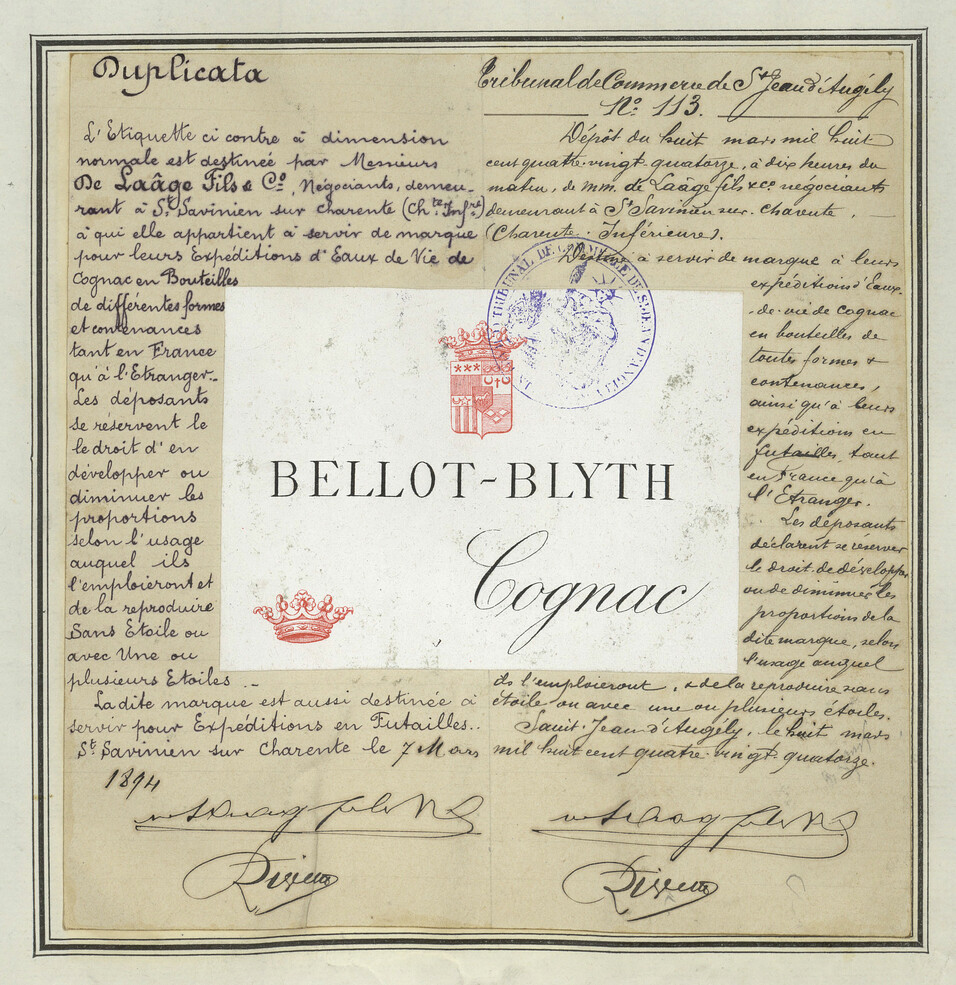 Duplicata
L'Etiquette ci contre à dimension
normale est destinée par Messieurs
De Laâge Fils & Cº, Négociants, demeu-
rant à St Savinien sur Charente (Chte Infre)
à qui elle appartient à servir de marque
pour leurs Expéditions d'Eaux de Vie de
Cognac en Bouteilles
de différentes formes
et contenances
tant en France
qu'à l'Etranger._
Les déposants
se réservent le
le droit d'en
développer ou
diminuer les
proportions
selon l'usage
auquel ils
l'emploieront et
de la reproduire
Sans Etoile ou
avec Une ou
plusieurs Etoiles._
La dite marque est aussi destinée à
servir pour Expéditions en Futailles..
St Savinien sur Charente le 7 Mars
1894
Tribunal de Commerce de St Jean d'Angély
Nº 113.
Dépôt du huit mars mil huit
cent quatre-vingt-quatorze, à dix heures du
matin, de mm. de Laâge fils & Cie négociants
demeurant à St Savinien sur Charente,
(Charente Inférieure).
Destiné à servir de marque à leurs
expéditions d'Eaux-
-de-vie de Cognac
en bouteilles de
toutes formes &
contenances,
ainsi qu'à leurs
expéditions en
futailles, tant
en France qu'à
l'Etranger.
Les déposants
déclarent se réserver
le droit de développer
ou de diminuer les
proportions de la
dite marque, selon
l'usage auquel
ils l'emploieront, & de la reproduire sans
étoile ou avec une ou plusieurs étoiles.
Saint-Jean-d'Angély, le huit mars
mil huit cent quatre vingt-quatorze.
TRIBUNAL DE COMMERCE DE ST JEAN D'ANGELY
BELLOT-BLYTH
Cognac